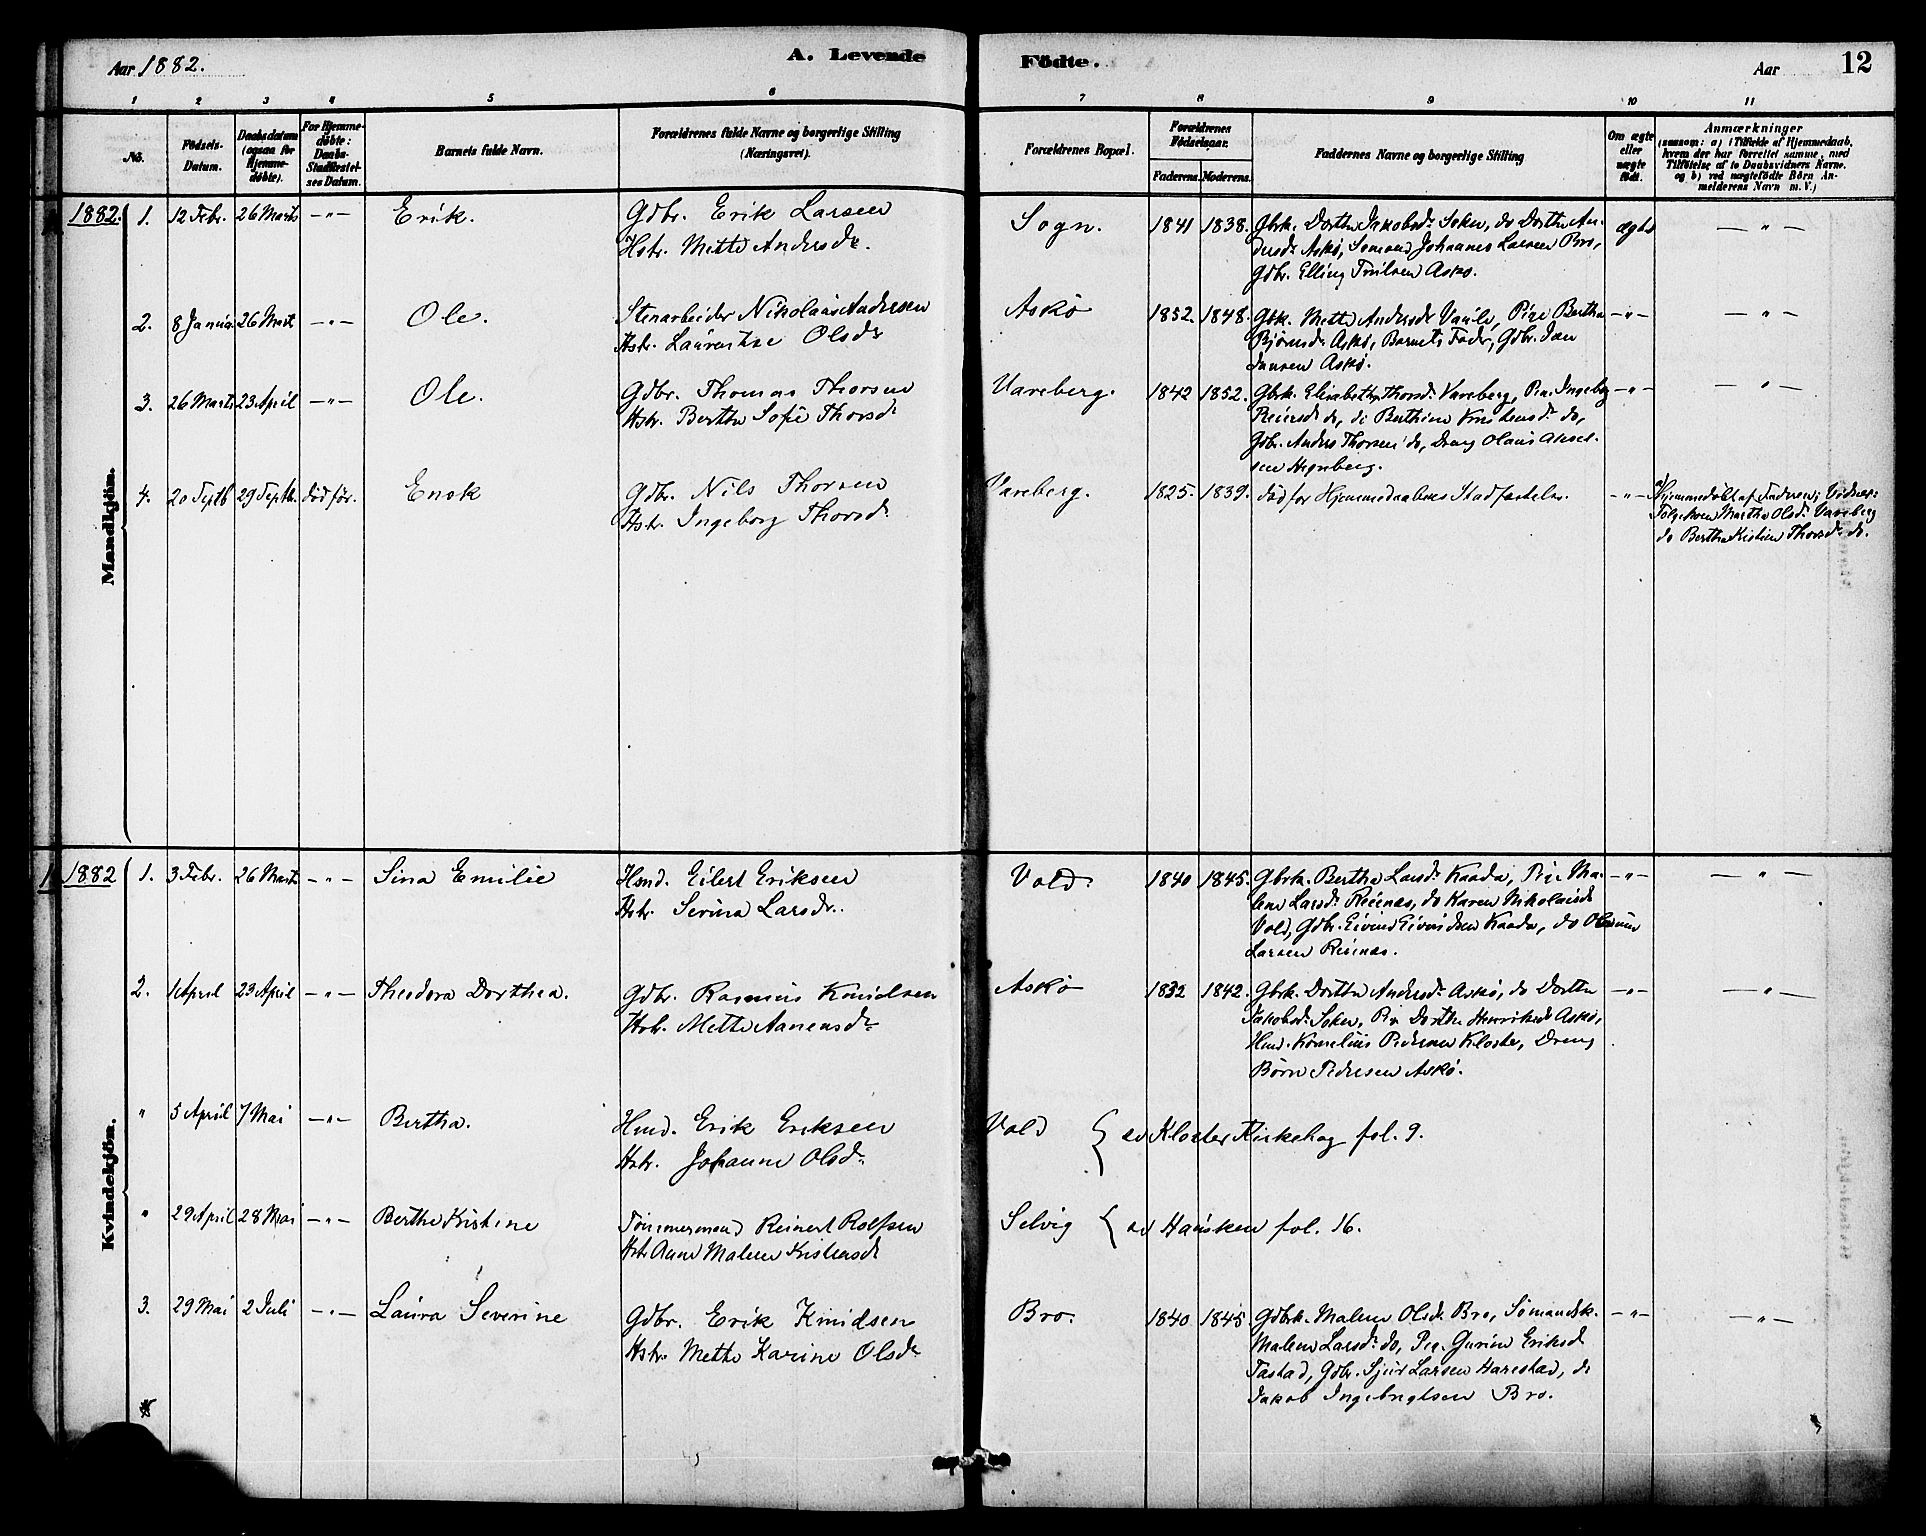 Aar 1882.
A. Levende Födte.
Aar
12
1 2 3 4 5 6 7 8 9 10 11
No.
Födsels-Datum.
Daabsdatum (ogsaa for Hjemmedöbte).
For Hjemmedöbte: Daabs-Stadfæstelses Datum.
Barnets fulde Navn.
Forældrenes fulde Navne og borgerlige Stilling (Næringsvei).
Forældrenes Bopæl.
Forældrenes Födselsaar.
Faderens. Moderens.
Faddernes Navne og borgerlige Stilling
Om ægte eller uægte födt.
Anmærkninger
(saasom: a) i Tilfælde af Hjemmedaab, hvem der har forrettet samme, med Tilföielse af to Daabsvidners Navne, og b) ved uægtefödte Börn Anmelderens Navn m. V.)
Mandkjön.
1882. 1. 12 Febr. 26 Marts —"— Erik. Gdbr. Erik Larsen
Hstr. Mette Andersdr.
Sogn. 1841 1838. Gbrk. Dorthe Jakobsdr Soken, do Dorthe An-
dersdr Askø, Sømand Johannes Larsen Bro,
Gdbr. Elling Askø.
ægte —"—
2. 8 Januar 26 Mart —"— Ole. Stenarbeider Nikolai Andresen
Hstr. Olsdr
Askø 1852. 1848. Gbk. Mette Andersdr Pige Bertha
Bjørnsdr Askø, Barnets Fader, Gdbr. Jan
Jansen Askø.
—"— —"—
3. 26 Marts 23 April —"— Ole. Gdbr. Thomas Thorsen
Hstr. Berthe Sofie Thorsdr
Vareberg. 1842 1852. Gbrk. Elisabeth Thorsdr Vareberg, Pige Ingeborg
Reiersdr do, do Berthine do,
Gdbr. Anders Thorsen do, Dreng Olaus Aksel-
sen
—"— —"—
4. 20 Septb 29 Septb. död før. Enok Gdbr. Nils Thorsen
Hstr. Ingeborg Thorsdr
Vareberg. 1825. 1839. död før Hjemmedaabens Stadfæstelse.
—"— Hjemmedøbt af Faderen; Vidner:
Martha Olsdr Vareberg
do Bertha Kistine Thorsdr do.
Kvindekjön.
1882 1. 3 Febr. 26 Marts —"— Sina Emilie Hmd. Eilert Eriksen
Hstr. Serina Larsdr.
Vold. 1840 1845. Gbrk. Bertha Larsdr Kaada, Pige Ma-
lene Larsdr Reienæs, do Karen Nikolaisdr
Vold, Gdbr. Eivind Eivindsen Kaada, do
Larsen Reienæs.
—"— —"—
2. 1 April 23 April —"— Theodora Dorthea. Gdbr. Rasmus Knudsen
Hstr. Mette Aanensdr
Askø 1832 1842. Gbrk. Dorthe Andersdr Askø, do Dorthe
Jakobsdr Soken, Pige Dorthe Henriksdr Askø,
Hmd. Kornelius Pedersen Kloster, Dreng
Børn Pedersen Askø.
—"— —"—
" 5 April 7 Mai —"— Bertha. Hmd. Erik Eriksen
Hstr. Johanne Olsdr
Vold { ad Kloster Kirkebog fol. 9.
" 29 April 28 Mai —"— Berthe Kristine Tømmermand Reinert Rolfsen
Hstr Anne Malene Kristensdr
Selvig { ad Hausken fol. 16.
3. 29 Mai 2 Juli —"— Laura Severine Gdbr. Erik Knudsen
Hstr. Mette Karine Olsdr
Bro. 1840 1845 Gdbrk. Malene Olsdr Bro, Sømandsk.
Malene Larsdr do, Pige Gurine Eriksdr
Tastad, Gdbr. Sjur Larsen Harestad, do
Jakob Ingebrigtsen Bro.
—"— —"—